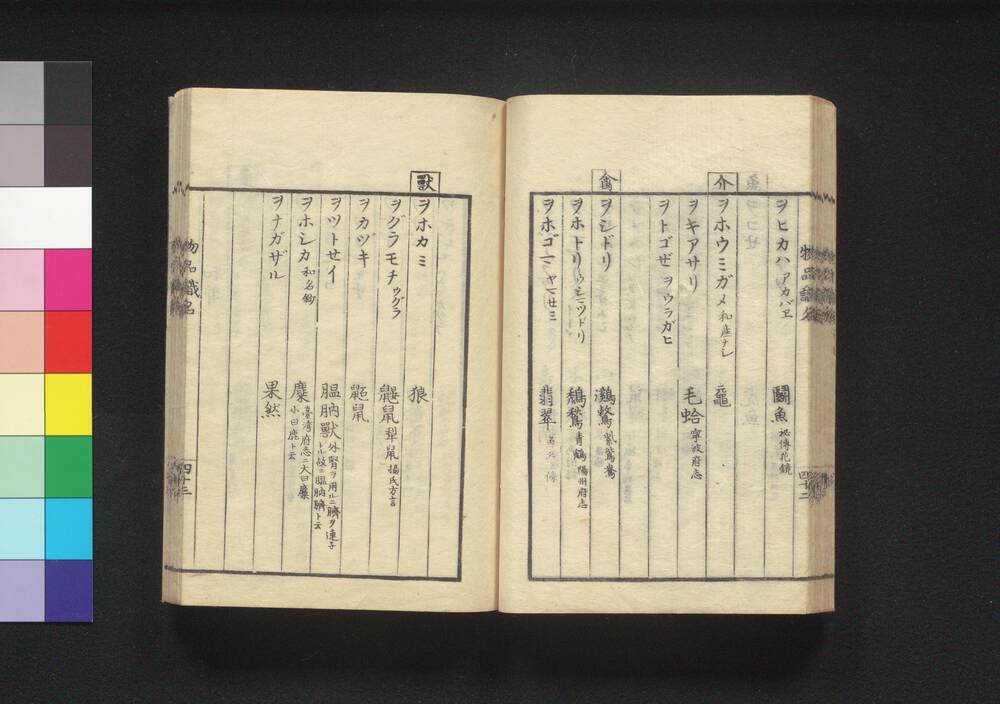 ヲヒカハ アカバヱ 鬭魚 祕傳花鏡
介
ヲホウミガメ 和産ナシ 黿
ヲキアサリ 毛蛤 寧波府志
ヲトゴゼ ヲウラガヒ
禽
ヲシドリ 鸂鷘 紫鴛鴦
ヲホトリ
青鶴
ヲホゴニ 翡翠
物品識名
四十二
獸
ヲホカミ 狼
ヲグラモチ ウグラ 鼴鼠 犁鼠 揚氏方言
ヲカヅキ 鼠
ヲツトセイ 膃肭獸 外腎ヲ用ルニ臍ヲ連子トル故ニ膃肭臍ト云
ヲホシカ 和名鈔 麋 臺湾府志ニ大曰麋小曰鹿ト云
ヲナガザル 果然
物品識名
四十三